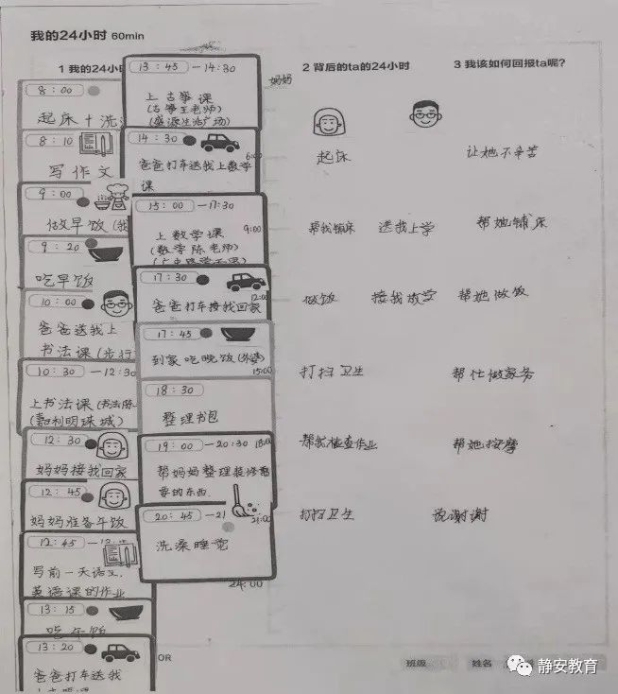 我的24小时 60min
1 我的24小时
8:00
起床+洗
8:10
写作文
9:00
做早饭(我
9:20
吃早饭
10:00
爸爸送我上
书法课(步行
10:30 —12:30
上书法课(书法
(嘉利明珠城)
12:30
妈妈接我回家
12:45
妈妈准备午饭
12:45
写前一天语文,
英语课的作业
13:15
吃午饭
13:20
爸爸打车送我
13:45 —14:30
上古筝课
(古筝王老师)
(盛源生活广场)
14:30
爸爸打车送我上数学
课
15:00 —17:30
上数学课
(数学陈老师)
17:30
爸爸打车接我回家
17:45
到家吃晚饭(外婆)
18:30
整理书包
19:00 —20:30
帮妈妈整理装修需
要的东西.
20:45 —21
洗澡睡觉
6:00
9:00
12:00
15:00
18:00
21:00
24:00
OR
妈妈
2 背后的ta的24小时
起床
帮我铺床 送我上学
做饭 接我放学
打扫卫生
帮我检查作业
打扫卫生
3 我该如何回报ta呢?
让她不辛苦
帮她铺床
帮她做饭
帮忙做家务
帮她按摩
说谢谢
班级 姓名
静安教育